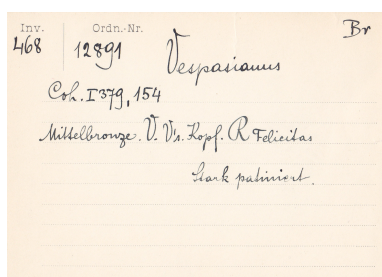 Inv. Ordn.-Nr. Br
468 12891 Vespasianus
Coh. I 379, 154
Mittelbronze. V. V's. Kopf. R Felicitas
Stark patiniert.